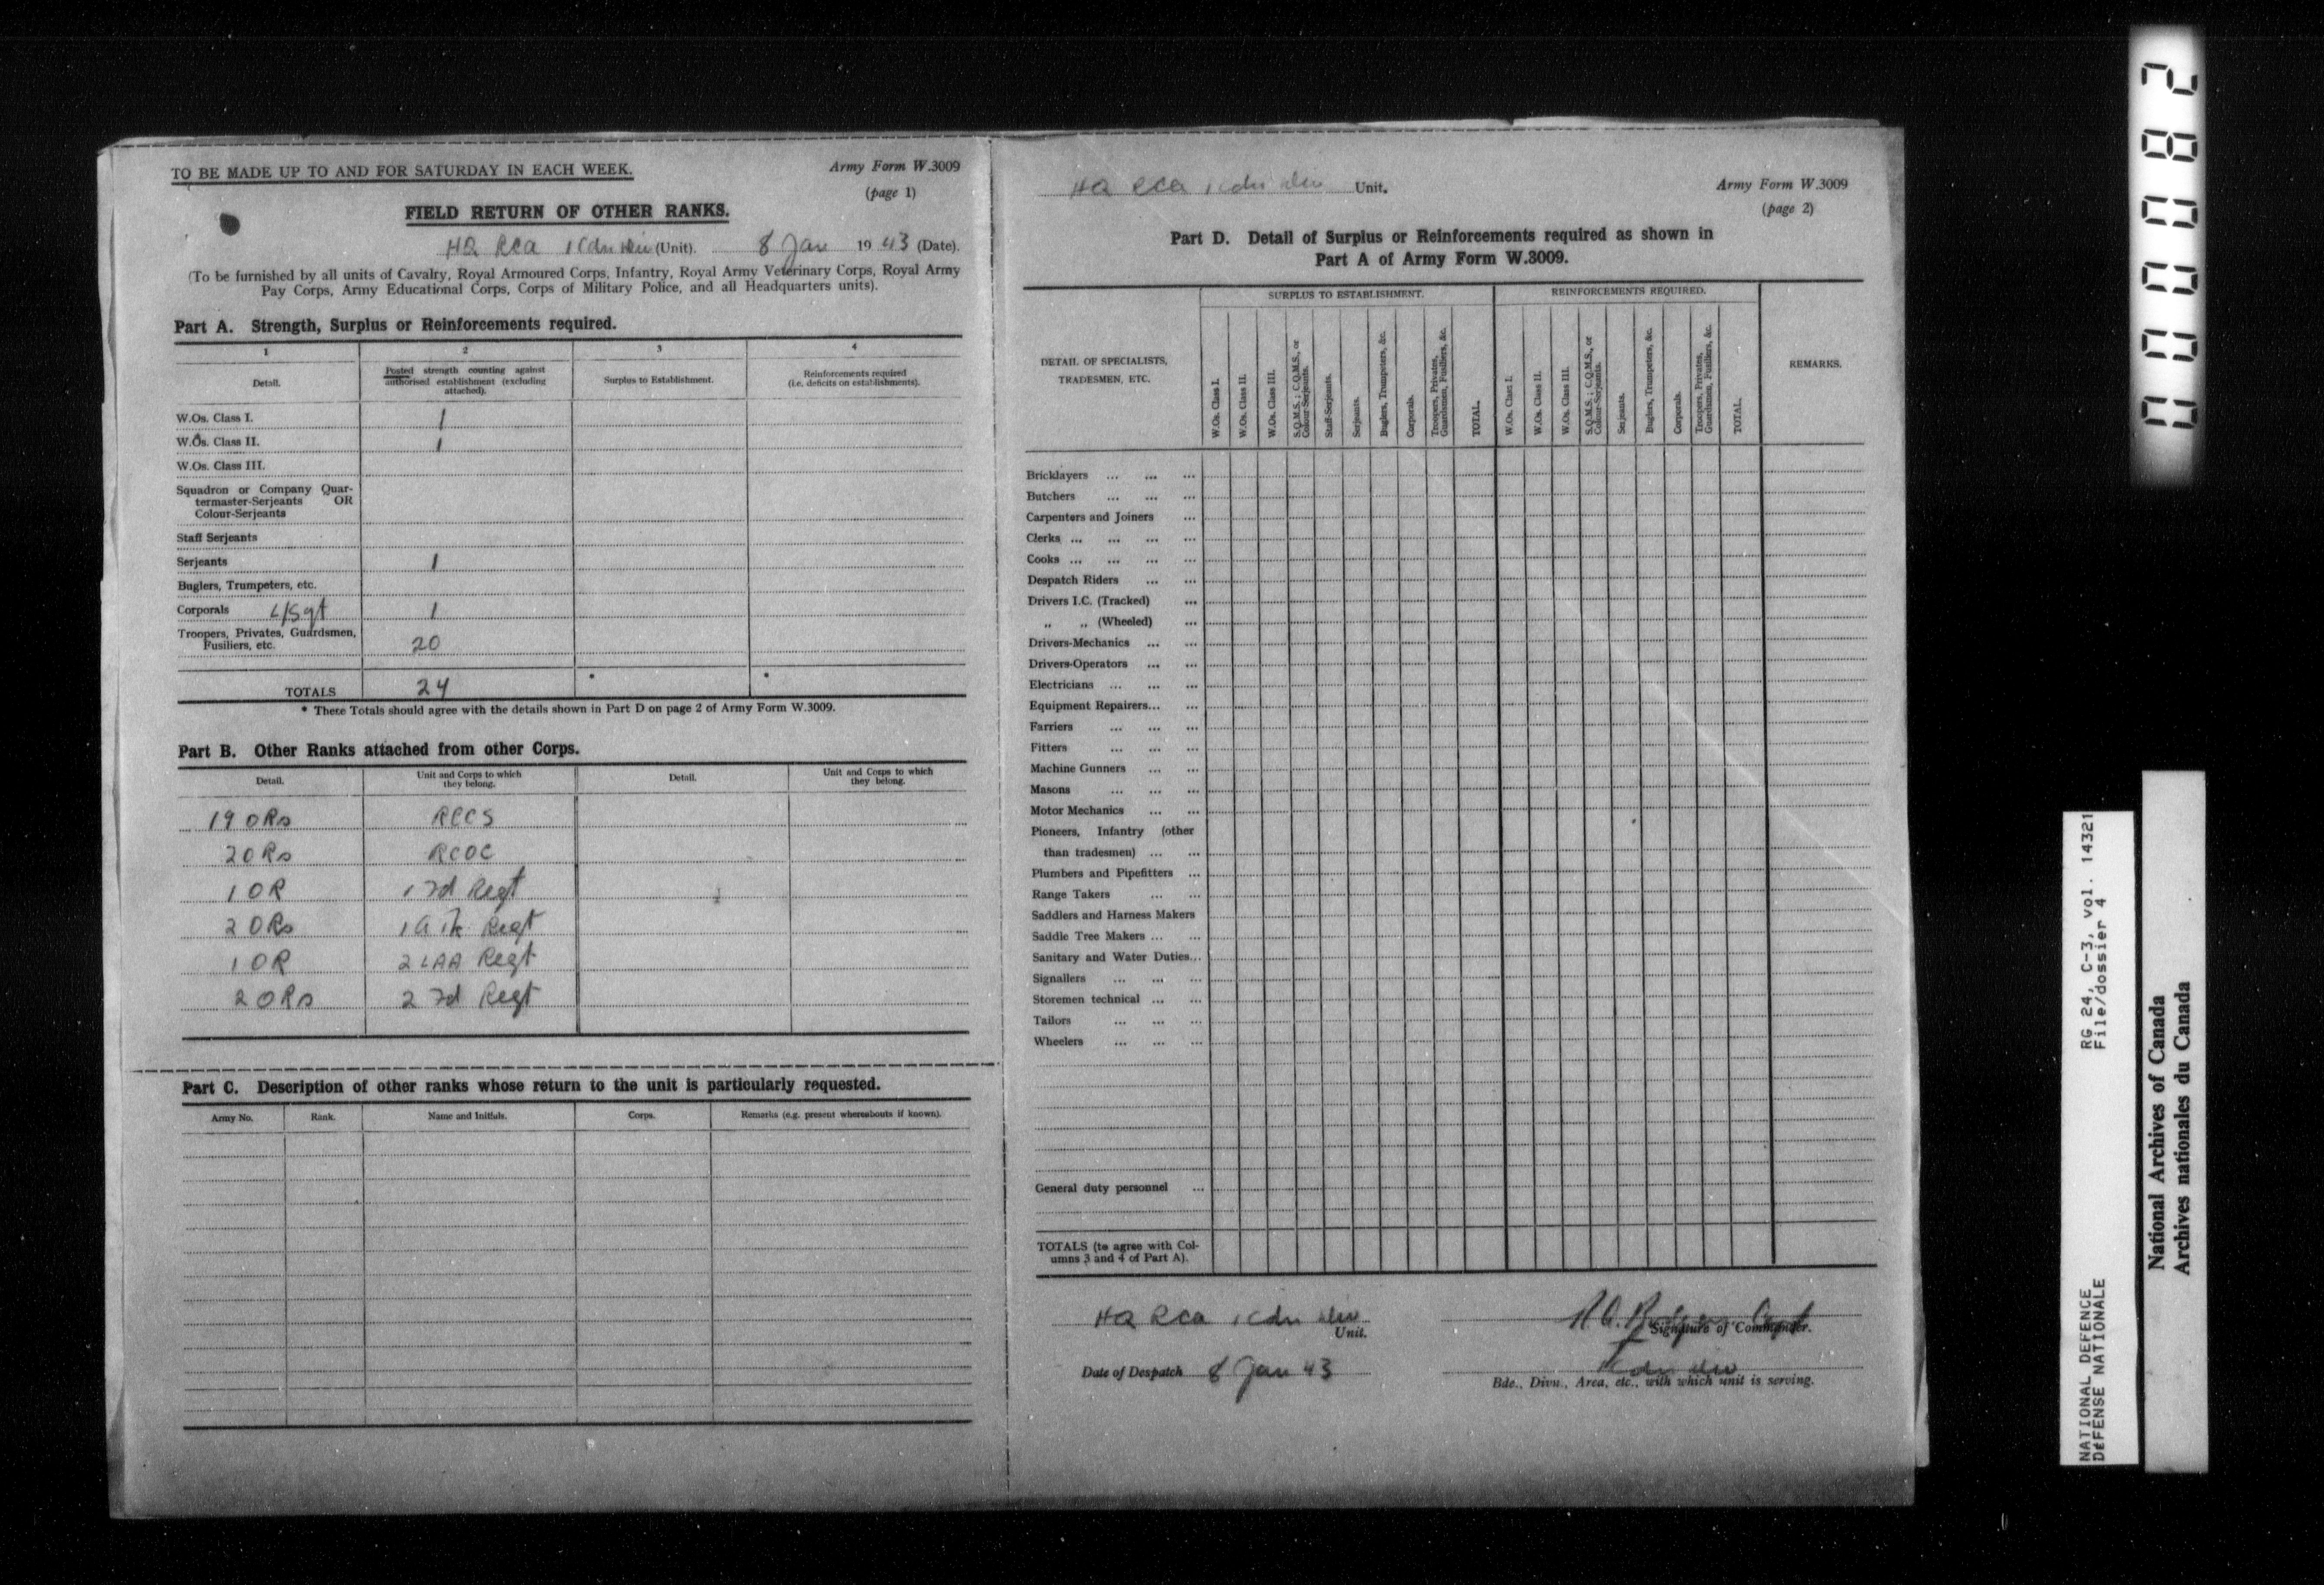 TO BE MADE UP TO AND FOR SATURDAY IN EACH WEEK.
Army Form W.3009
(page 1)
FIELD RETURN OF OTHER RANKS.
HQ RCA 1 Cdn Div (Unit). 8 Jan 19 43 (Date).
(To be furnished by all units of Cavalry, Royal Armoured Corps, Infantry, Royal Army Veterinary Corps, Royal Army
Pay Corps, Army Educational Corps, Corps of Military Police, and all Headquarters units).
Part A. Strength, Surplus or Reinforcements required.
1 2 3 4
Detail.
Posted strength counting against
authorised establishment (excluding
attached).
Surplus to Establishment.
Reinforcements required
(i.e. deficits on establishments).
W.Os. Class I. 1
W.Os. Class II. 1
W.Os. Class III.
Squadron or Company Quar-
termaster-Serjeants OR
Colour-Serjeants
Staff Serjeants
Serjeants 1
Buglers, Trumpeters, etc.
Corporals L/Sgt 1
Troopers, Privates, Guardsmen,
Fusiliers, etc. 20
TOTALS 24 * *
* These Totals should agree with the details shown in Part D on page 2 of Army Form W.3009.
Part B. Other Ranks attached from other Corps.
Detail.
Unit and Corps to which
they belong.
Detail.
Unit and Corps to which
they belong.
19 ORs RCCS
2 ORs RCOC
1 OR 1 Fd Regt
2 ORs 1 A Tk Regt
1 OR 2 LAA Regt
2 ORs 2 Fd Regt
Part C. Description of other ranks whose return to the unit is particularly requested.
Army No. Rank. Name and Initials. Corps. Remarks (e.g. present whereabouts if known).
HQ RCA 1 Cdn Div Unit.
Army Form W.3009
(page 2)
Part D. Detail of Surplus or Reinforcements required as shown in
Part A of Army Form W.3009.
DETAIL OF SPECIALISTS,
TRADESMEN, ETC.
SURPLUS TO ESTABLISHMENT.
W.Os. Class I.
W.Os. Class II.
W.Os. Class III.
S.Q.M.S.; C.Q.M.S., or
Colour-Serjeants.
Staff-Serjeants.
Serjeants.
Buglers, Trumpeters, &c.
Corporals.
Troopers, Privates,
Guardsmen, Fusiliers, &c.
TOTAL.
REINFORCEMENTS REQUIRED.
W.Os. Class I.
W.Os. Class II.
W.Os. Class III.
S.Q.M.S.; C.Q.M.S., or
Colour-Serjeants.
Serjeants.
Buglers, Trumpeters, &c.
Corporals.
Troopers, Privates,
Guardsmen, Fusiliers, &c.
TOTAL.
REMARKS.
Bricklayers ... ... ...
Butchers ... ... ...
Carpenters and Joiners ...
Clerks ... ... ... ...
Cooks ... ... ... ...
Despatch Riders ... ...
Drivers I.C. (Tracked) ...
„ „ (Wheeled) ...
Drivers-Mechanics ... ...
Drivers-Operators ... ...
Electricians ... ... ...
Equipment Repairers... ...
Farriers ... ... ...
Fitters ... ... ...
Machine Gunners ... ...
Masons ... ... ...
Motor Mechanics ... ...
Pioneers, Infantry (other
than tradesmen) ... ...
Plumbers and Pipefitters ...
Range Takers ... ...
Saddlers and Harness Makers
Saddle Tree Makers ... ...
Sanitary and Water Duties...
Signallers ... ... ...
Storemen technical ... ...
Tailors ... ... ...
Wheelers ... ... ...
General duty personnel ...
TOTALS (to agree with Col-
umns 3 and 4 of Part A).
HQ RCA 1 Cdn Div
Unit.
Capt
Signature of Commander.
Date of Despatch 8 Jan 43
1 Cdn Div
Bde., Divn., Area, etc., with which unit is serving.
0000082
NATIONAL DEFENCE RG 24, C-3, vol. 14321
DÉFENSE NATIONALE File/dossier 4
National Archives of Canada
Archives nationales du Canada